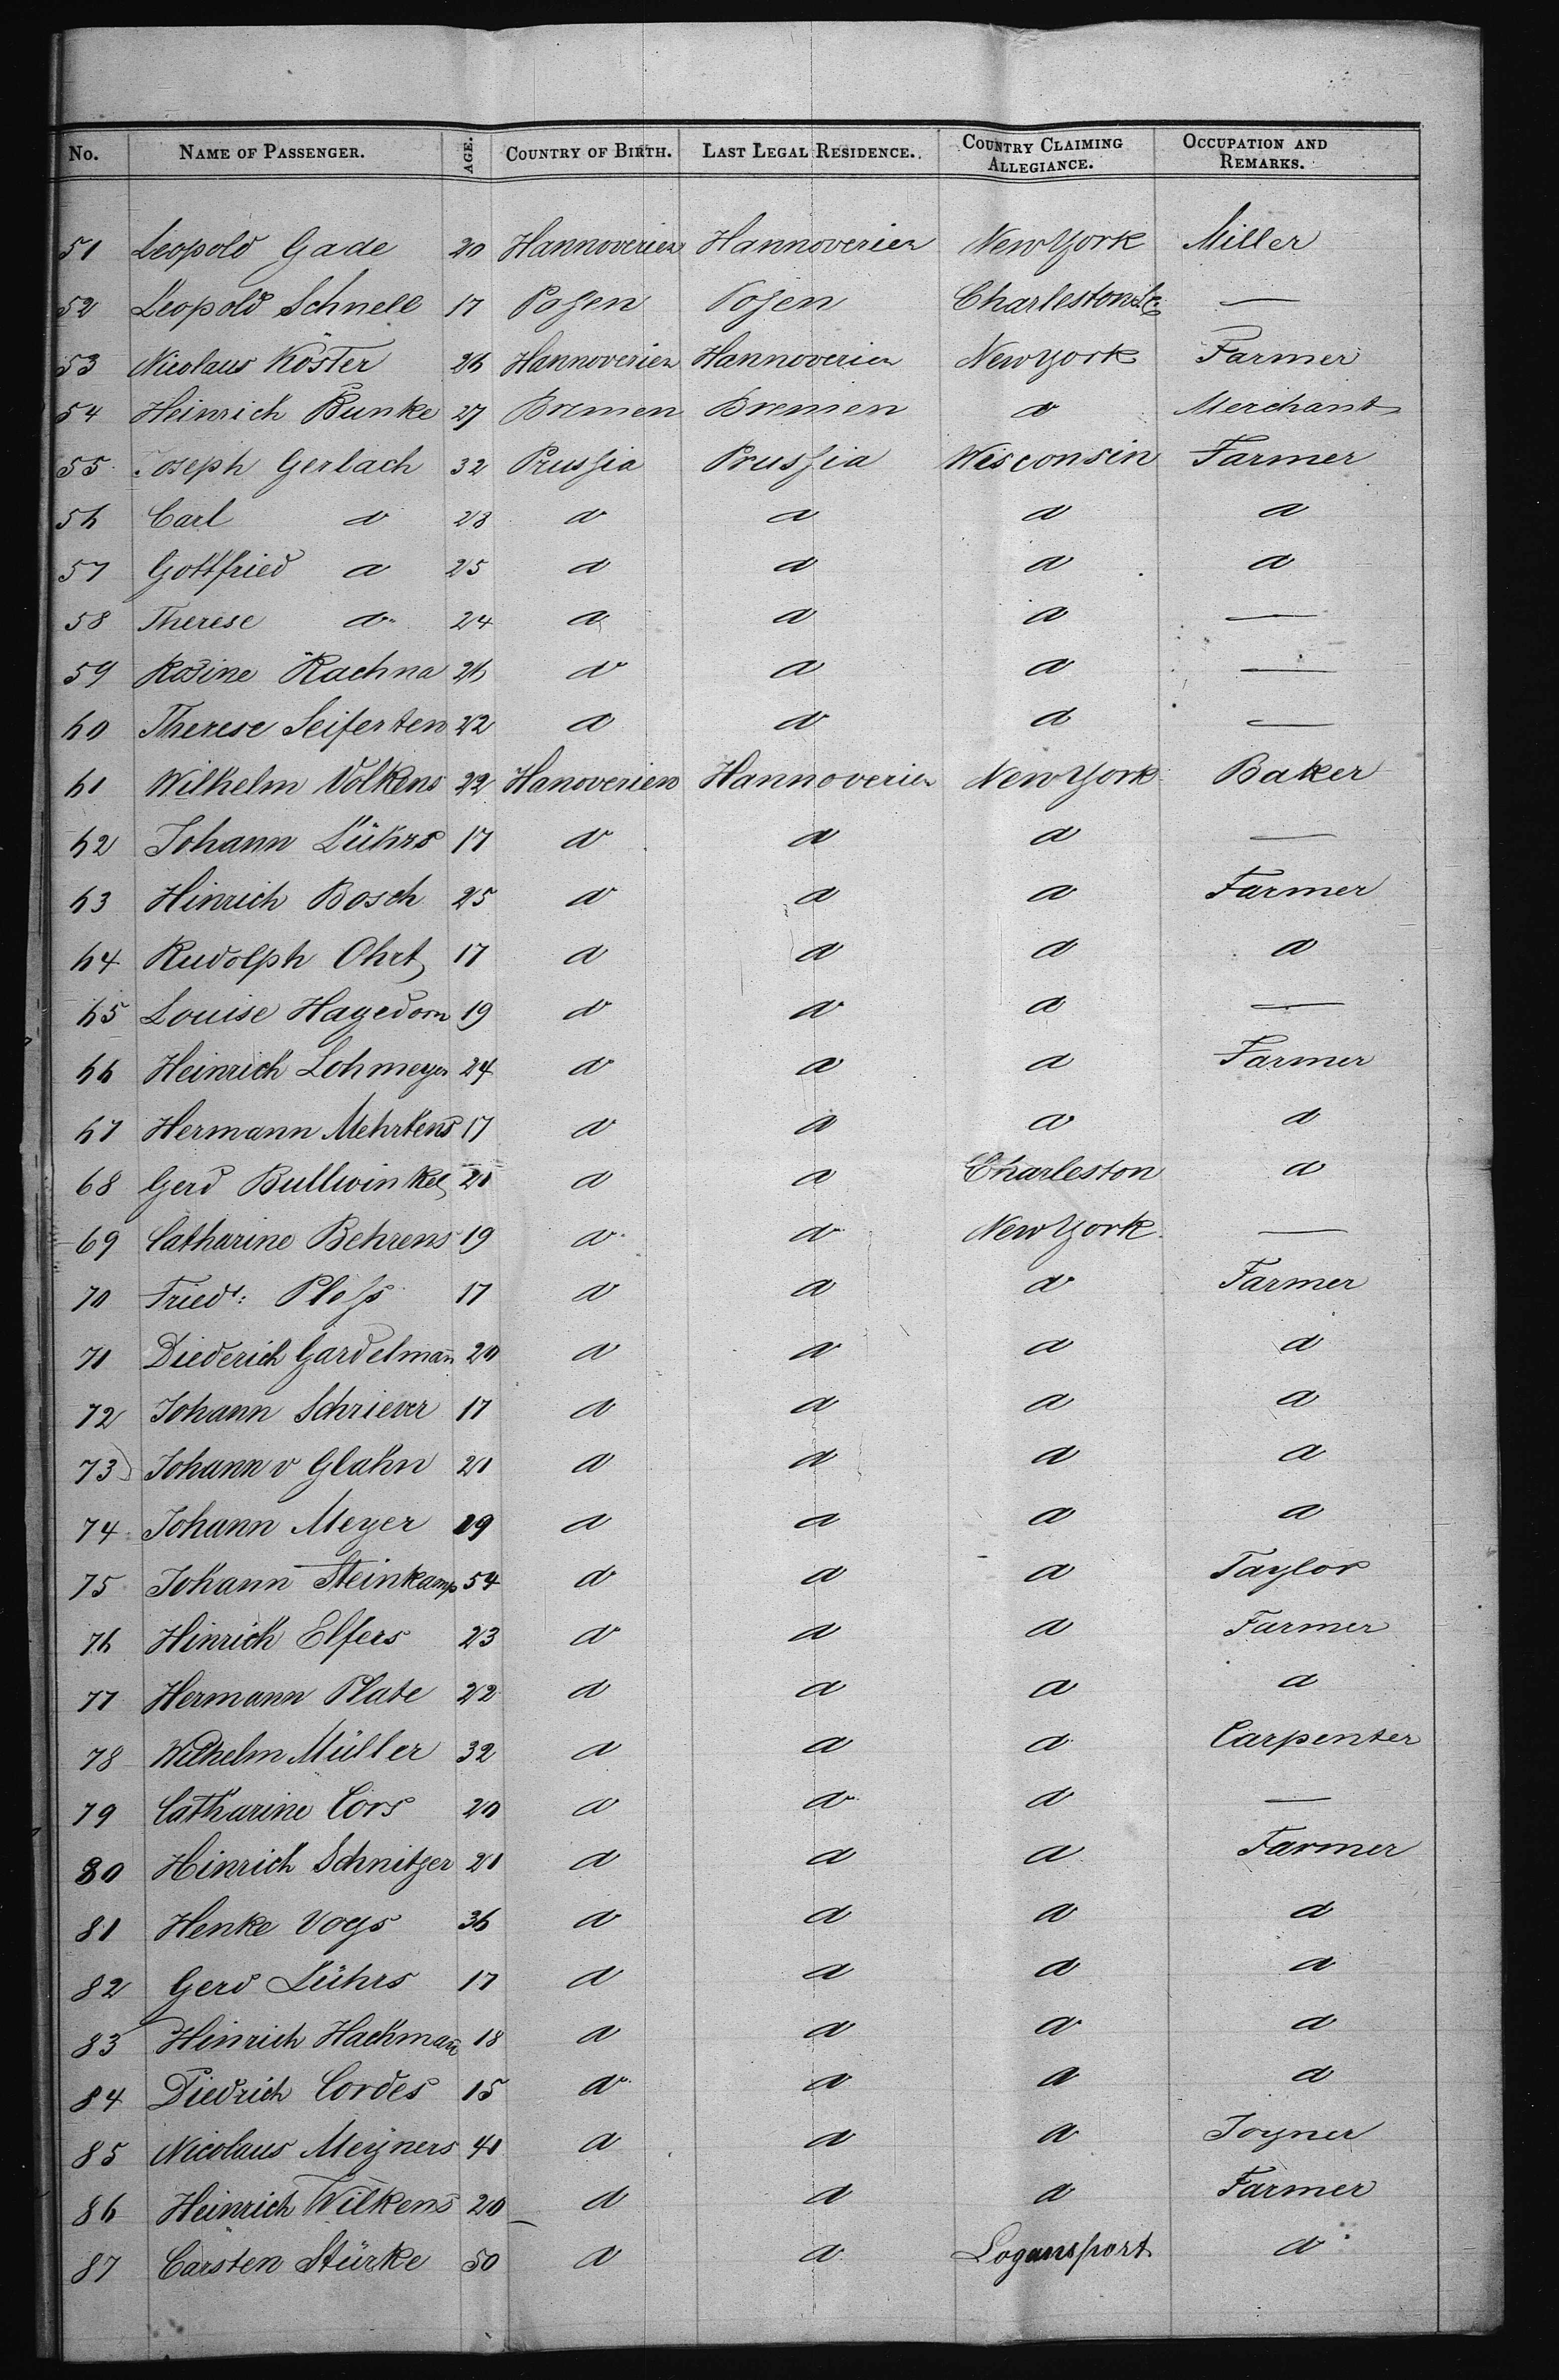 No. NAME OF PASSENGER. AGE. COUNTRY OF BIRTH. LAST LEGAL RESIDENCE. COUNTRY CLAIMING ALLEGIANCE. OCCUPATION AND REMARKS.
51 Leopold Gade 20 Hannoverien Hannoverien New York Miller
52 Leopold Schnell 17 Poßen Poßen Charleston —
53 Nicolaus Köster 26 Hannoverien Hannoverien New York Farmer
54 Heinrich Bunke 27 Bremen Bremen d Merchant
55 Joseph Gerlach 32 Prußia Prußia Wisconsin Farmer
56 Carl d 28 d d d d
57 Gottfried d 25 d d d d
58 Therese d 24 d d d —
59 Rosine Rachna 26 d d d —
60 Therese Seiferten 22 d d d —
61 Wilhelm Volkens 22 Hanoverien Hannoverien New York Baker
62 Johann Lührs 17 d d d —
63 Hinrich Bosch 25 d d d Farmer
64 Rudolph Ohrt 17 d d d d
65 Louise Hagedorn 19 d d d —
66 Heinrich Lohmeyer 24 d d d Farmer
67 Hermann Mehrtens 17 d d d d
68 Gerd Bullwinkel 21 d d Charleston d
69 Catharine Behrens 19 d d New York —
70 Friedr: Pleß 17 d d d Farmer
71 Diederich Gardelman̄ 20 d d d d
72 Johann Schriever 17 d d d d
73 Johann v Glahn 21 d d d d
74 Johann Meyer 19 d d d d
75 Johann Steinkamp 54 d d d Taylor
76 Hinrich Elfers 23 d d d Farmer
77 Hermann Plate 22 d d d d
78 Wilhelm Müller 32 d d d Carpenter
79 Catharine Cors 20 d d d —
80 Hinrich Schnitger 21 d d d Farmer
81 Henke Vogs 36 d d d d
82 Gerd Lührs 17 d d d d
83 Hinrich Hackman̄ 18 d d d d
84 Diedrich Cordes 15 d d d d
85 Nicolaus Meyners 41 d d d Joyner
86 Heinrich Wilkens 20 d d d Farmer
87 Carsten Stürke 50 d d Logansport d